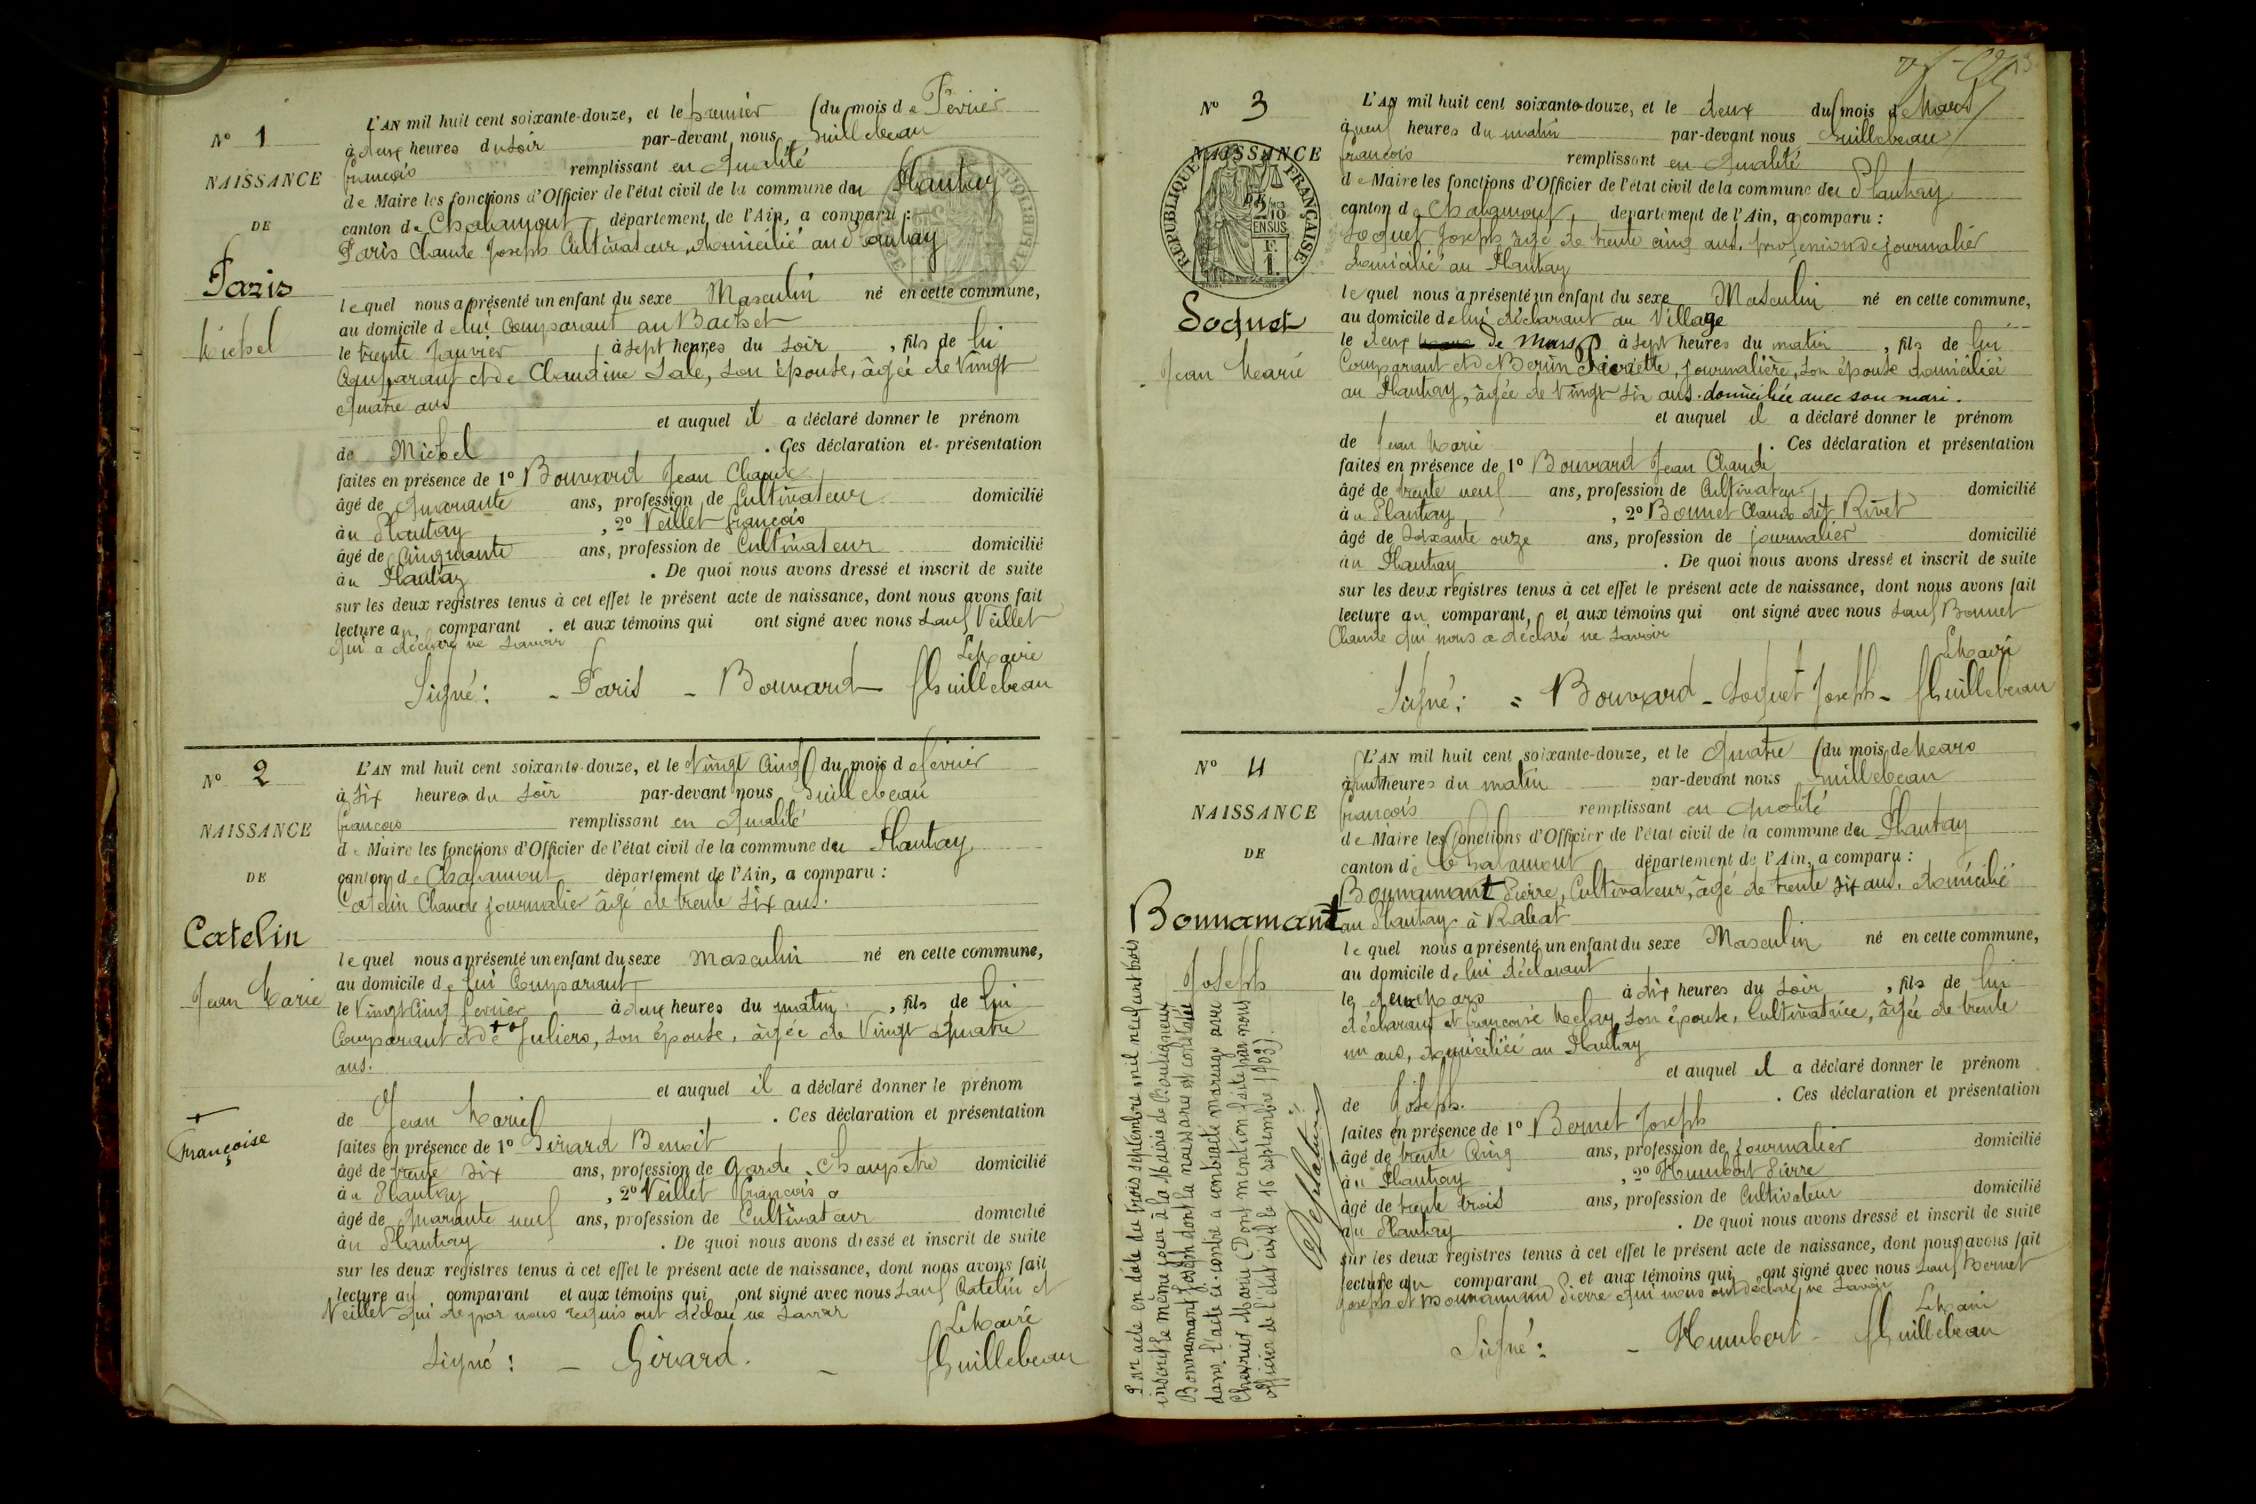 N° 1
NAISSANCE
DE
Paris
Michel
L'AN mil huit cent soixante-douze, et le premier du mois de Février
à deux heures du soir par-devant nous Guillebeau
françois remplissant en qualité
de Maire les fonctions d'Officier de l'état civil de la commune du Plantay
canton de Chalamont, département de l'Ain, a comparu :
Paris Claude Joseph Cultivateur, domicilié au Plantay
lequel nous a présenté un enfant du sexe Masculin né en cette commune,
au domicile de lui Comparant au
le trente Janvier, à sept heures du soir, fils de lui
Comparant et de Claudine, son épouse, âgée de Vingt
quatre ans
et auquel il a déclaré donner le prénom
de Michel. Ces déclaration et présentation
faites en présence de 1° Bouvard Jean Claude
âgé de quarante ans, profession de Cultivateur domicilié
au Plantay, 2° Veillet françois
âgé de Cinquante ans, profession de Cultivateur domicilié
au Plantay. De quoi nous avons dressé et inscrit de suite
sur les deux registres tenus à cet effet le présent acte de naissance, dont nous avons fait
lecture au comparant. et aux témoins qui ont signé avec nous sauf Veillet
qui a déclaré ne savoir
Le Maire
Signé : - Paris - Bouvard fGuillebeau
N° 2
NAISSANCE
DE
Catelin
Jean Marie
+
Françoise
L'AN mil huit cent soixante-douze, et le Vingt Cinq du mois de février
à six heures du soir par-devant nous Guillebeau
françois remplissant en qualité
de Maire les fonctions d'Officier de l'état civil de la commune du Plantay
canton de Chalamont département de l'Ain, a comparu :
Catelin Claude journalier âgé de trente six ans.
lequel nous a présenté un enfant du sexe masculin né en cette commune,
au domicile de lui Comparant
le Vingt Cinq fevrier à deux heures du matin, fils de lui
Comparant et de + Juliers, son épouse, âgée de Vingt quatre
ans.
et auquel il a déclaré donner le prénom
de Jean Marie. Ces déclaration et présentation
faites en présence de 1° Girard Benoit
âgé de trente six ans, profession de Garde Champêtre domicilié
au Plantay, 2° Veillet françois
âgé de quarante neuf ans, profession de Cultivateur domicilié
au Plantay. De quoi nous avons dressé et inscrit de suite
sur les deux registres tenus à cet effet le présent acte de naissance, dont nous avons fait
lecture au comparant et aux témoins qui ont signé avec nous sauf Catelin et
Veillet qui de par nous requis ont déclaré ne savoir
Le Maire
Signé : - Girard. - fGuillebeau
N° 3
NAISSANCE
REPUBLIQUE FRANÇAISE
2/10
EN SUS
F.
1.
Soquet
Jean Marie
L'AN mil huit cent soixante-douze, et le deux du mois de Mars
à neuf heures du matin par-devant nous Guillebeau
françois remplissant en qualité
de Maire les fonctions d'Officier de l'état civil de la commune du Plantay
canton de Chalamont, département de l'Ain, a comparu :
Soquet Joseph âgé de trente cinq ans, profession de journalier
domicilié au Plantay
lequel nous a présenté un enfant du sexe Masculin né en cette commune,
au domicile de lui déclarant au Village
le deux de Mars à sept heures du matin, fils de lui
Comparant et de, journalière, son épouse domiciliéi
au Plantay, âgée de Vingt six ans. domiciliée avec son mari.
et auquel il a déclaré donner le prénom
de Jean Marie. Ces déclaration et présentation
faites en présence de 1° Bouvard Jean Claude
âgé de trente neuf ans, profession de Cultivateur domicilié
au Plantay, 2° Bonnet Claude dit Rivet
âgé de soixante onze ans, profession de journalier domicilié
au Plantay. De quoi nous avons dressé et inscrit de suite
sur les deux registres tenus à cet effet le présent acte de naissance, dont nous avons fait
lecture au comparant, et aux témoins qui ont signé avec nous sauf Bonnet
Claude qui nous a déclaré ne savoir
Le Maire
Signé : = Bouvard - Soquet Joseph - fGuillebeau
N° 4
NAISSANCE
DE
Bonnamant
Joseph
L'AN mil huit cent soixante-douze, et le quatre du mois de Mars
à huit heures du matin par-devant nous Guillebeau
françois remplissant en qualité
de Maire les fonctions d'Officier de l'état civil de la commune du Plantay
canton de Chalamont département de l'Ain, a comparu :
Bonnamant Pierre, Cultivateur, âgé de trente six ans. domicilié
au Plantay à
lequel nous a présenté un enfant du sexe Masculin né en cette commune,
au domicile de lui déclarant
le deux Mars à dix heures du soir, fils de lui
déclarant et françoise, son épouse, Cultivatrice, âgée de trente
un ans, domiciliéi au Plantay
et auquel il a déclaré donner le prénom
de Joseph. Ces déclaration et présentation
faites en présence de 1° Bernet Joseph
âgé de trente Cinq ans, profession de journalier domicilié
au Plantay, 2° Humbert Pierre
âgé de trente trois ans, profession de Cultivateur domicilié
au Plantay. De quoi nous avons dressé et inscrit de suite
sur les deux registres tenus à cet effet le présent acte de naissance, dont nous avons fait
lecture au comparant et aux témoins qui ont signé avec nous sauf Bernet
Joseph et Bonnamant Pierre qui nous ont déclaré ne savoir
Le Maire
Signé : - Humbert - fGuillebeau
Par acte en date du trois septembre mil neuf cent trois
inscrit le même jour à la Mairie de Bouligneux
Bonnamant Joseph dont la naissance est constatée
dans l'acte ci-contre a contracté mariage avec
Chevrier Marie (Dont mention faite par nous
officier de l'état civil le 16 septembre 1903).